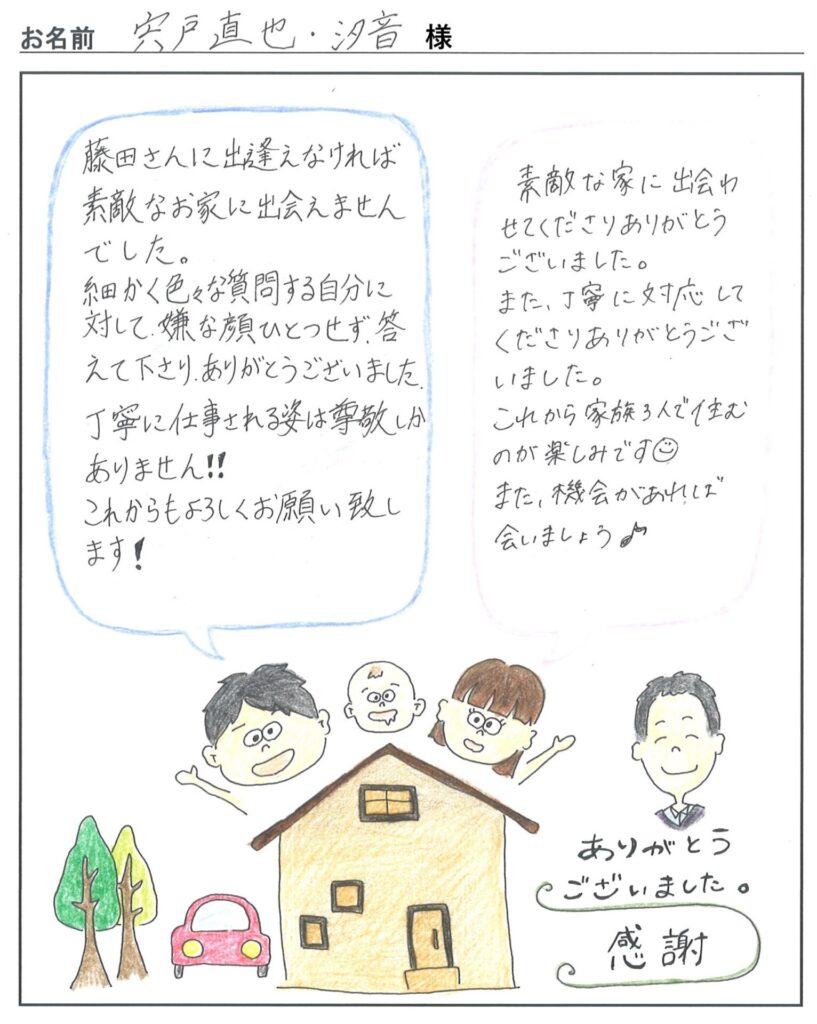 お名前 宍戸直也・汐音 様
藤田さんに出逢えなければ
素敵なお家に出会えません
でした。
細かく色々な質問する自分に
対して、嫌な顔ひとつせず、答
えて下さり、ありがとうございました。
丁寧に仕事される姿は尊敬しか
ありません!!
これからもよろしくお願い致し
ます!
素敵な家に出会わ
せてくださりありがとう
ございました。
また、丁寧に対応して
くださりありがとうござ
いました。
これから家族3人で住む
のが楽しみです☺
また、機会があれば
会いましょう♪
ありがとう
ございました。
感謝